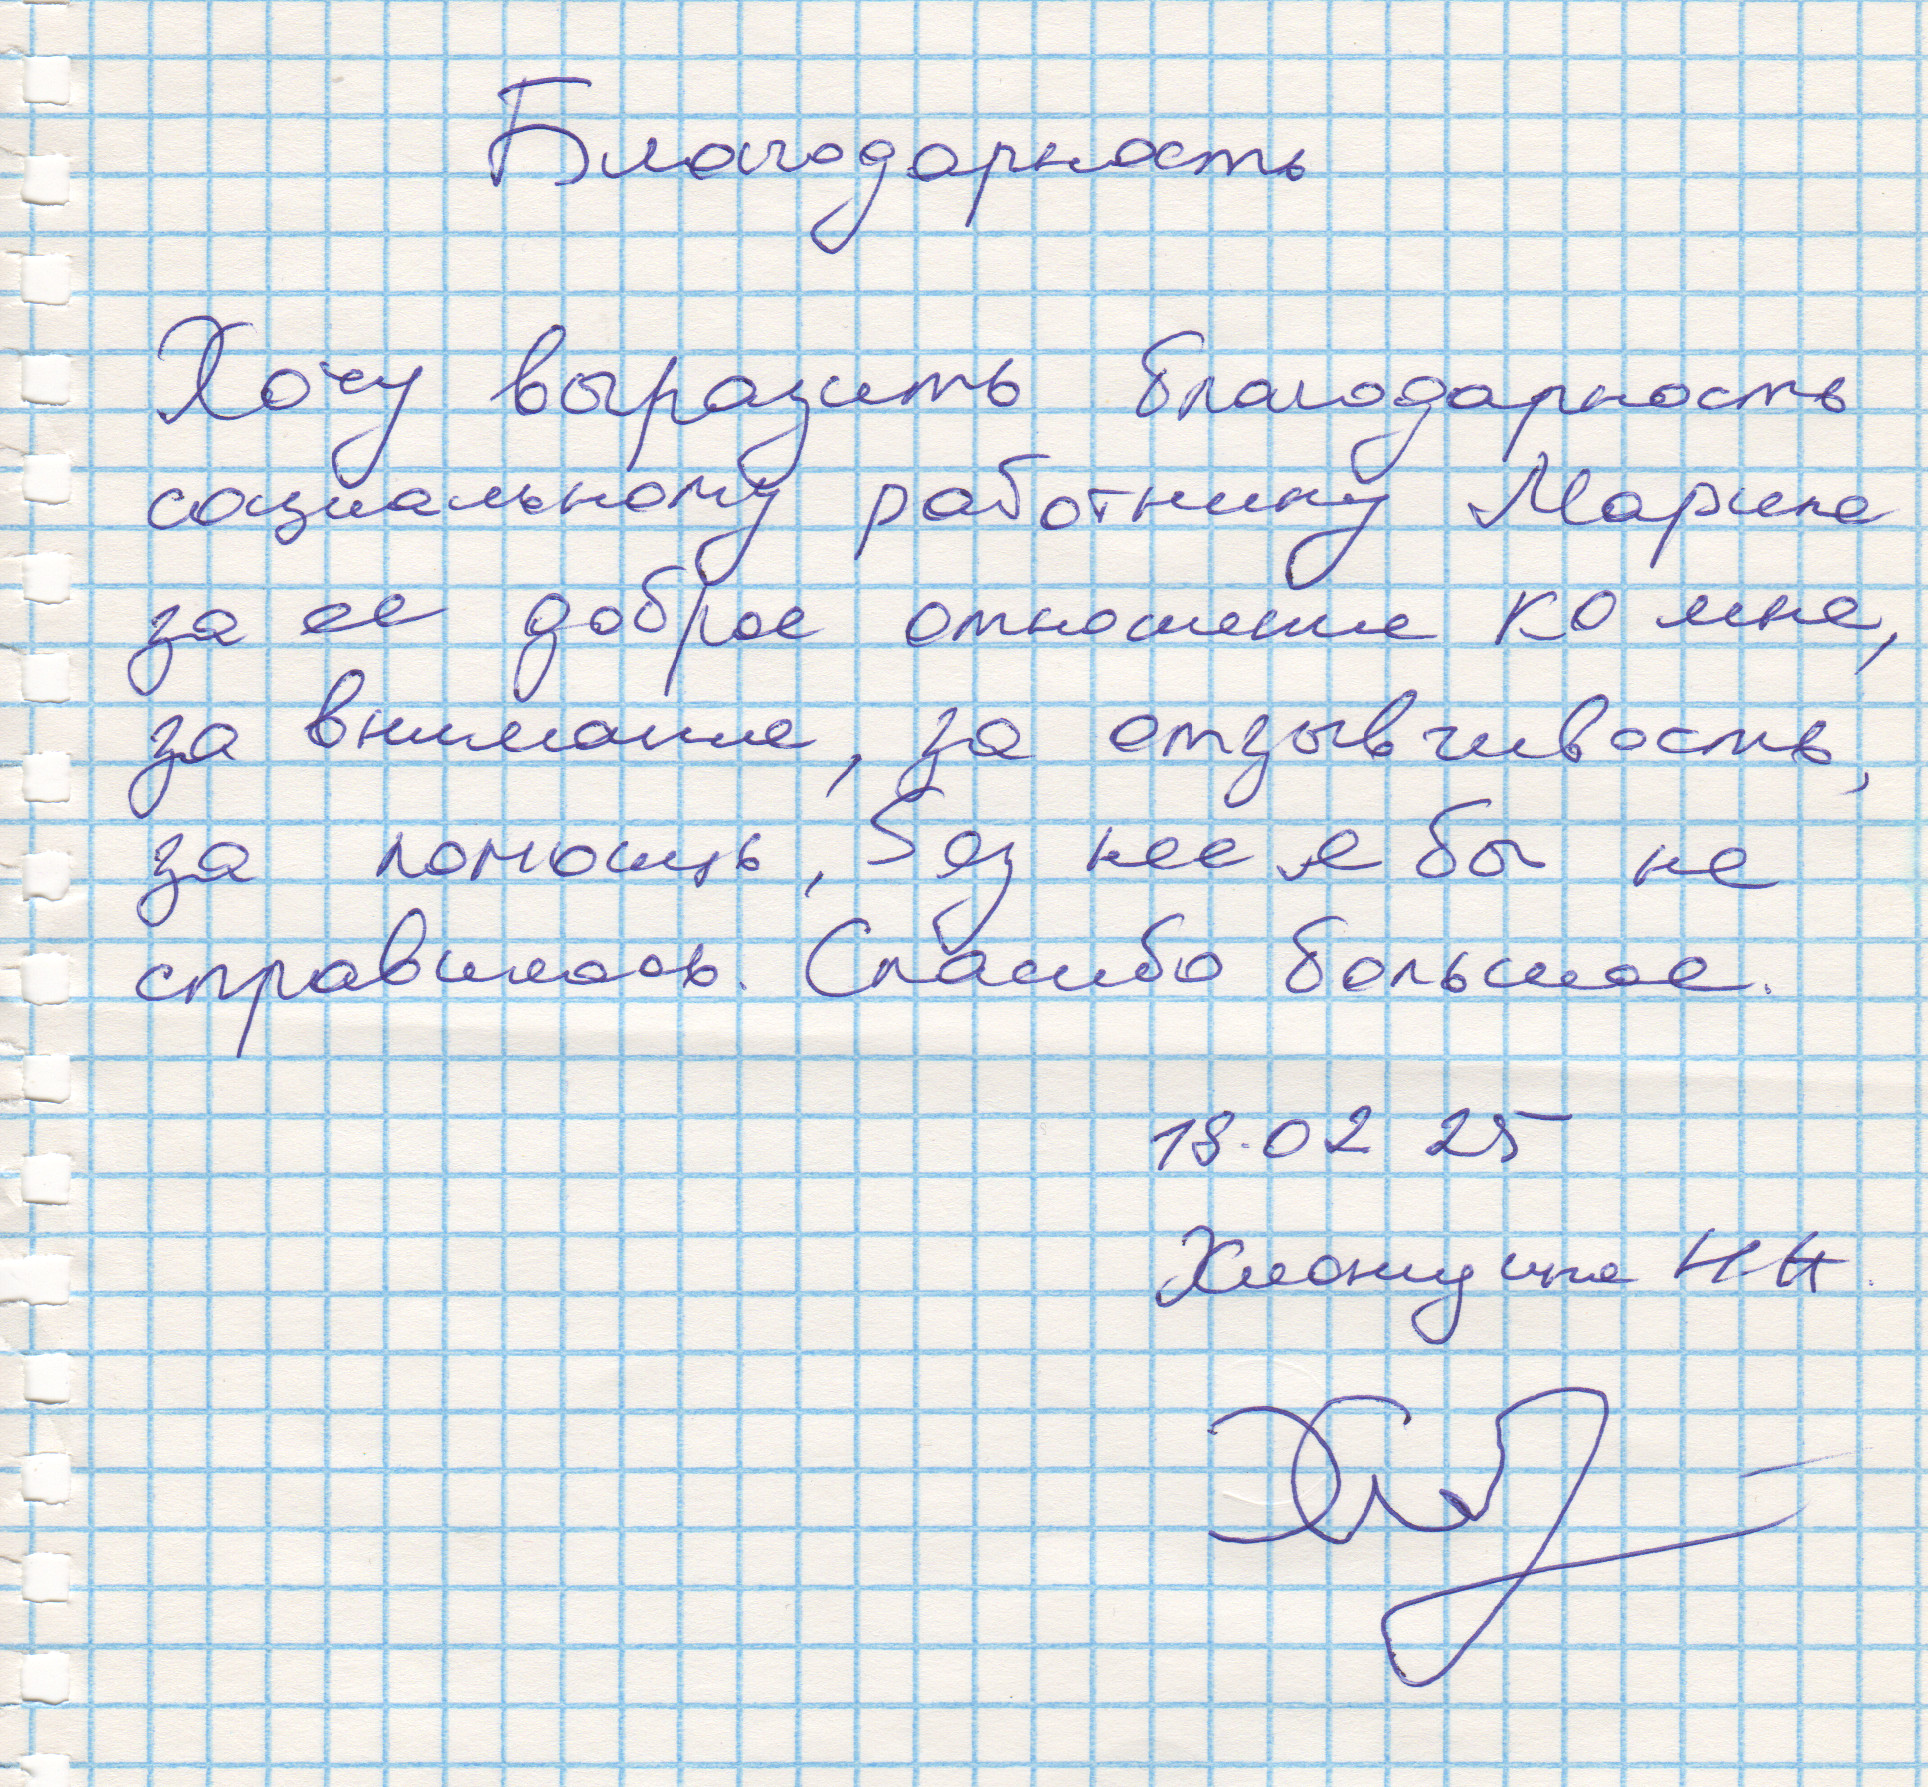 Благодарность
Хочу выразить благодарность
социальному работнику Марине
за ее доброе отношение ко мне,
за внимание, за отзывчивость,
за помощь, без нее я бы не
справилась. Спасибо большое.
18.02 25
Н.Н.